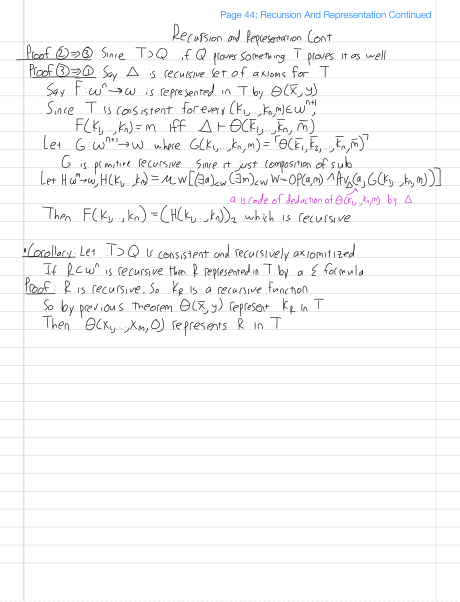 Page 44: Recursion And Representation Continued
Recursion and Representation Cont
Proof ②⇒③ Since T⊃Q if Q proves something T proves it as well
Proof ③⇒① Say Δ is recursive set of axioms for T
Say F:ωⁿ→ω is represented in T by Θ(x̄,y)
Since T is consistent for every (k₁,...,kₙ,m)∈ωⁿ⁺¹,
F(k₁,...,kₙ)=m iff Δ⊢Θ(k̄₁,...,k̄ₙ,m̄)
Let G:ωⁿ⁺¹→ω where G(k₁,...,kₙ,m)=⌜Θ(k̄₁,k̄₂,...,k̄ₙ,m̄)⌝
G is primitive recursive since it just composition of sub
Let H:ωⁿ→ω, H(k₁,...,kₙ)=μw[(∃a)<w (∃m)<w w=OP(a,m)∧Prv_Δ(a,G(k₁,...,kₙ,m))]
a is code of deduction of Θ(k̄₁,...,k̄ₙ,m̄) by Δ
Then F(k₁,...,kₙ)=(H(k₁,...,kₙ))₂ which is recursive
•Corollary: Let T⊃Q is consistent and recursively axiomitized
If R⊂ωⁿ is recursive then R represented in T by a Σ formula
Proof: R is recursive. So K_R is a recursive function
So by previous theorem Θ(x̄,y) represent K_R in T
Then Θ(x₁,...,xₘ,0) represents R in T